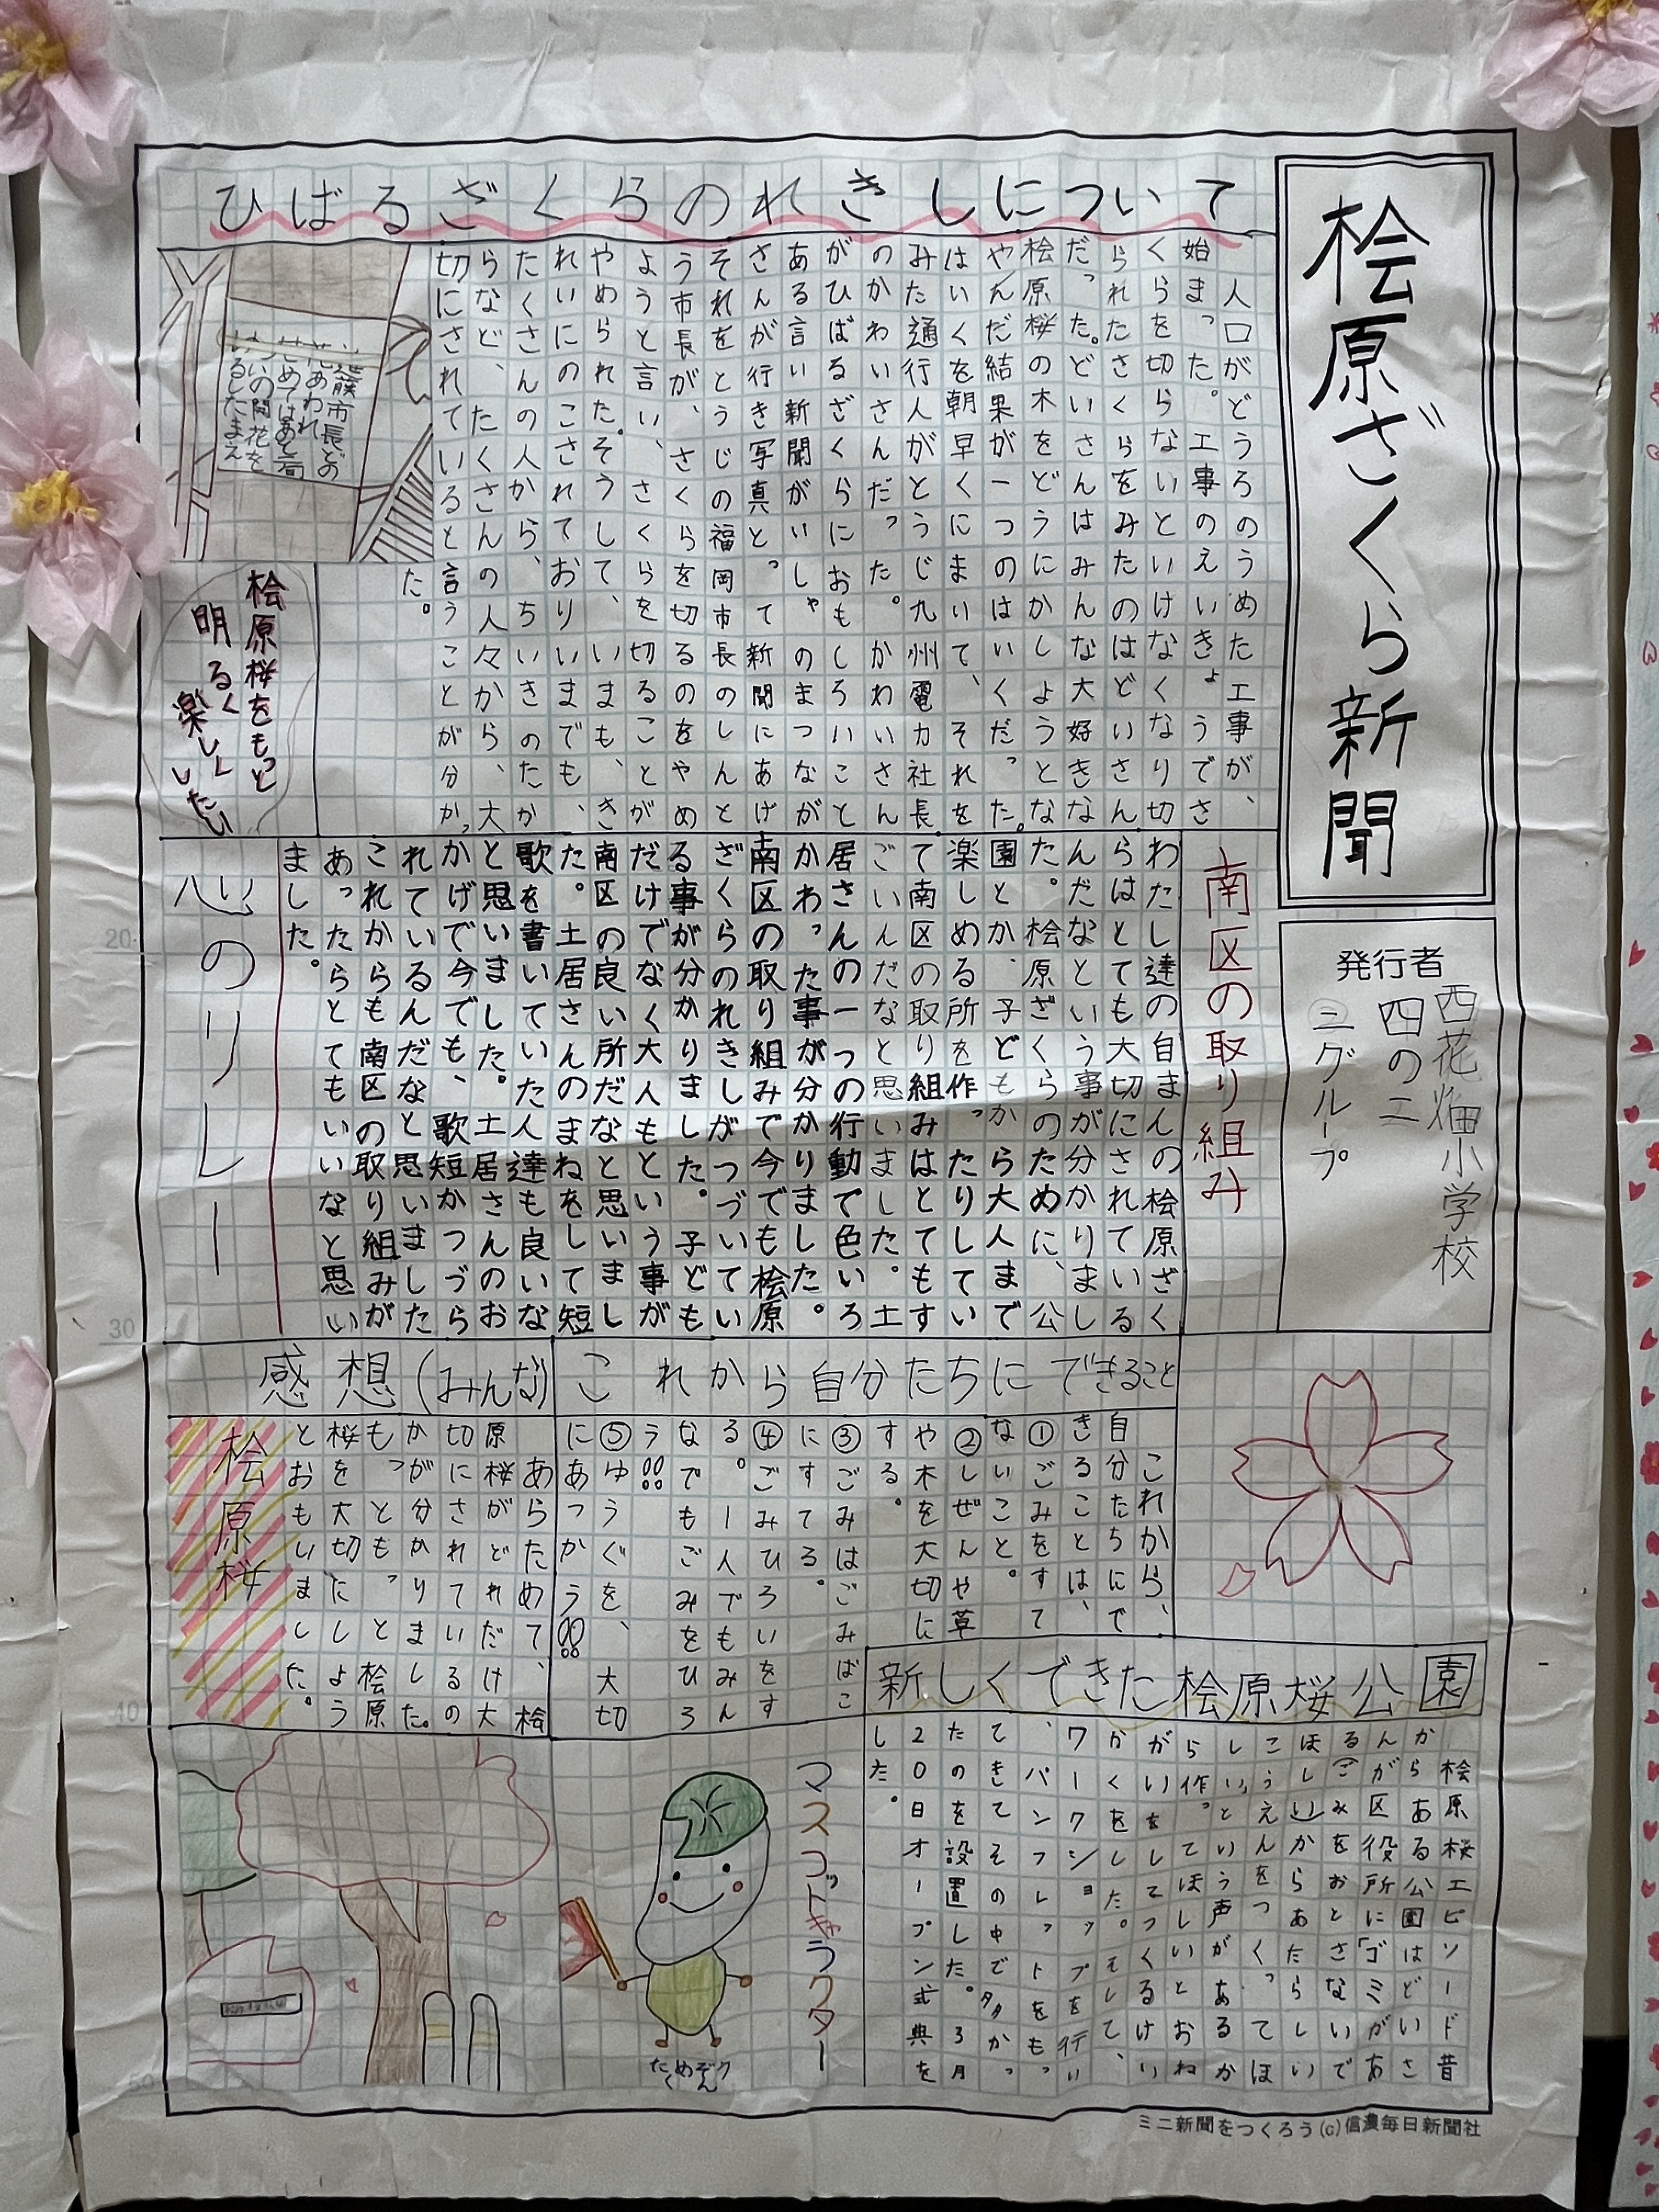 桧原ざくら新聞
発行者
西花畑小学校
四の二
三グループ
ひばるざくらのれきしについて
人口がどうろのうめた工事が、
始まった。工事のえいきょうでさ
くらを切らないといけなくなり切
られたさくらをみたのはどいさん
だった。どいさんはみんな大好きな
桧原桜の木をどうにかしようとな
やんだ結果が一つのはいくだった。
はいくを朝早くにまいて、それを
みた通行人がとうじ九州電力社長
のかわいさんだった。かわいさん
がひばるざくらにおもしろいこと
ある言い新聞がいしゃのまつなが
さんが行き写真とって新聞にあげ
それをとうじの福岡市長のしんと
う市長が、さくらを切るのをやめ
ようと言い、さくらを切ることが
やめられた。そうして、いまも、き
れいにのこされておりいまでも、
たくさんの人から、ちいきのたか
らなど、たくさんの人々から、大
切にされていると言うことが分かっ
た。
進藤市長どの
花あわれ
せめてはあと二旬
ついの開花を
ゆるしたまえ
桧原桜をもっと
明るく
楽しく
したい
南区の取り組み
わたし達の自まんの桧原ざく
らはとても大切にされている
んだなという事が分かりまし
た。桧原ざくらのために、公
園とか、子どもから大人まで
楽しめる所を作ったりしてい
て南区の取り組みはとてもす
ごいんだなと思いました。土
居さんの一つの行動で色いろ
かわった事が分かりました。
南区の取り組みで今でも桧原
ざくらのれきしがつづいてい
る事が分かりました。子ども
だけでなく大人もという事が
南区の良い所だなと思いまし
た。土居さんのまねをして短
歌を書いていた人達も良いな
と思いました。土居さんのお
かげで今でも、歌短かつづら
れているんだなと思いました
これからも南区の取り組みが
あったらとてもいいなと思い
ました。
心のリレー
これから自分たちにできること
これから、
自分たちにで
きることは、
①ごみをすて
ないこと。
②しぜんや草
や木を大切に
する。
③ごみはごみばこ
にすてる。
④ごみひろいをす
る。一人でもみん
なでもごみをひろ
う!!
⑤ゆうぐを、大切
にあつかう!!
感想(みんな)
あらためて、桧
原桜がどれだけ大
切にされているの
かが分かりました。
もっともっと桧原
桜を大切にしよう
とおもいました。
桧原桜
新しくできた桧原桜公園
桧原桜エピソード昔
からある公園はどいさ
んが区役所に「ゴミがあ
る(ごみをおとさないで
ほしい)からあたらしい
こうえんをつくってほ
しい」という声があるか
ら作ってほしいとおね
がいをしてつくるけい
かくをした。そして、
ワークショップを行い
、パンフレットをもっ
てきてその中でタタかっ
たのを設置した。3月
20日オープン式典を
した。
マスコットキャラクター
ミニ新聞をつくろう(c)信濃毎日新聞社